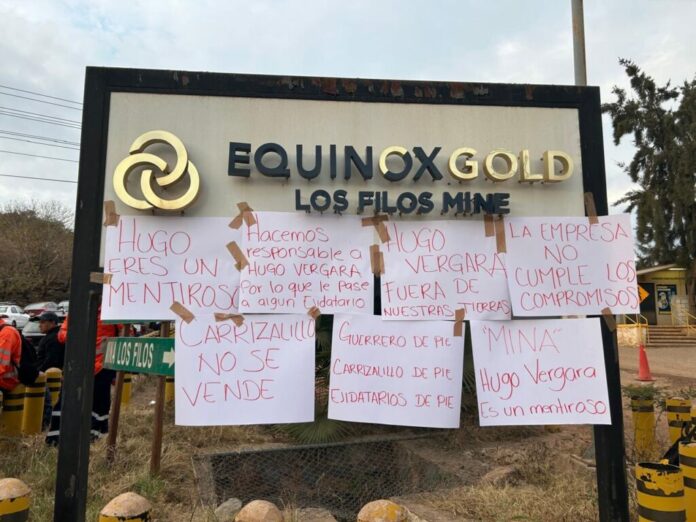 EQUINOX GOLD
LOS FILOS MINE
HUGO
ERES UN
MENTIROSO
Hacemos
responsable a
HUGO VERGARA
for lo que le Pase
a algun Ejidatario
HUGO
VERGARA
FUERA DE
NUESTRAS TIERRAS
LA EMPRESA
NO
CUMPLE LOS
COMPROMISOS
CARRIZALILLO
NO SE
VENDE
GUERRERO DE PIE
CARRIZALILLO DE PIE
EJIDATARIOS DE PIE
"MINA"
Hugo Vergara
Es un mentiroso
LOS FILOS